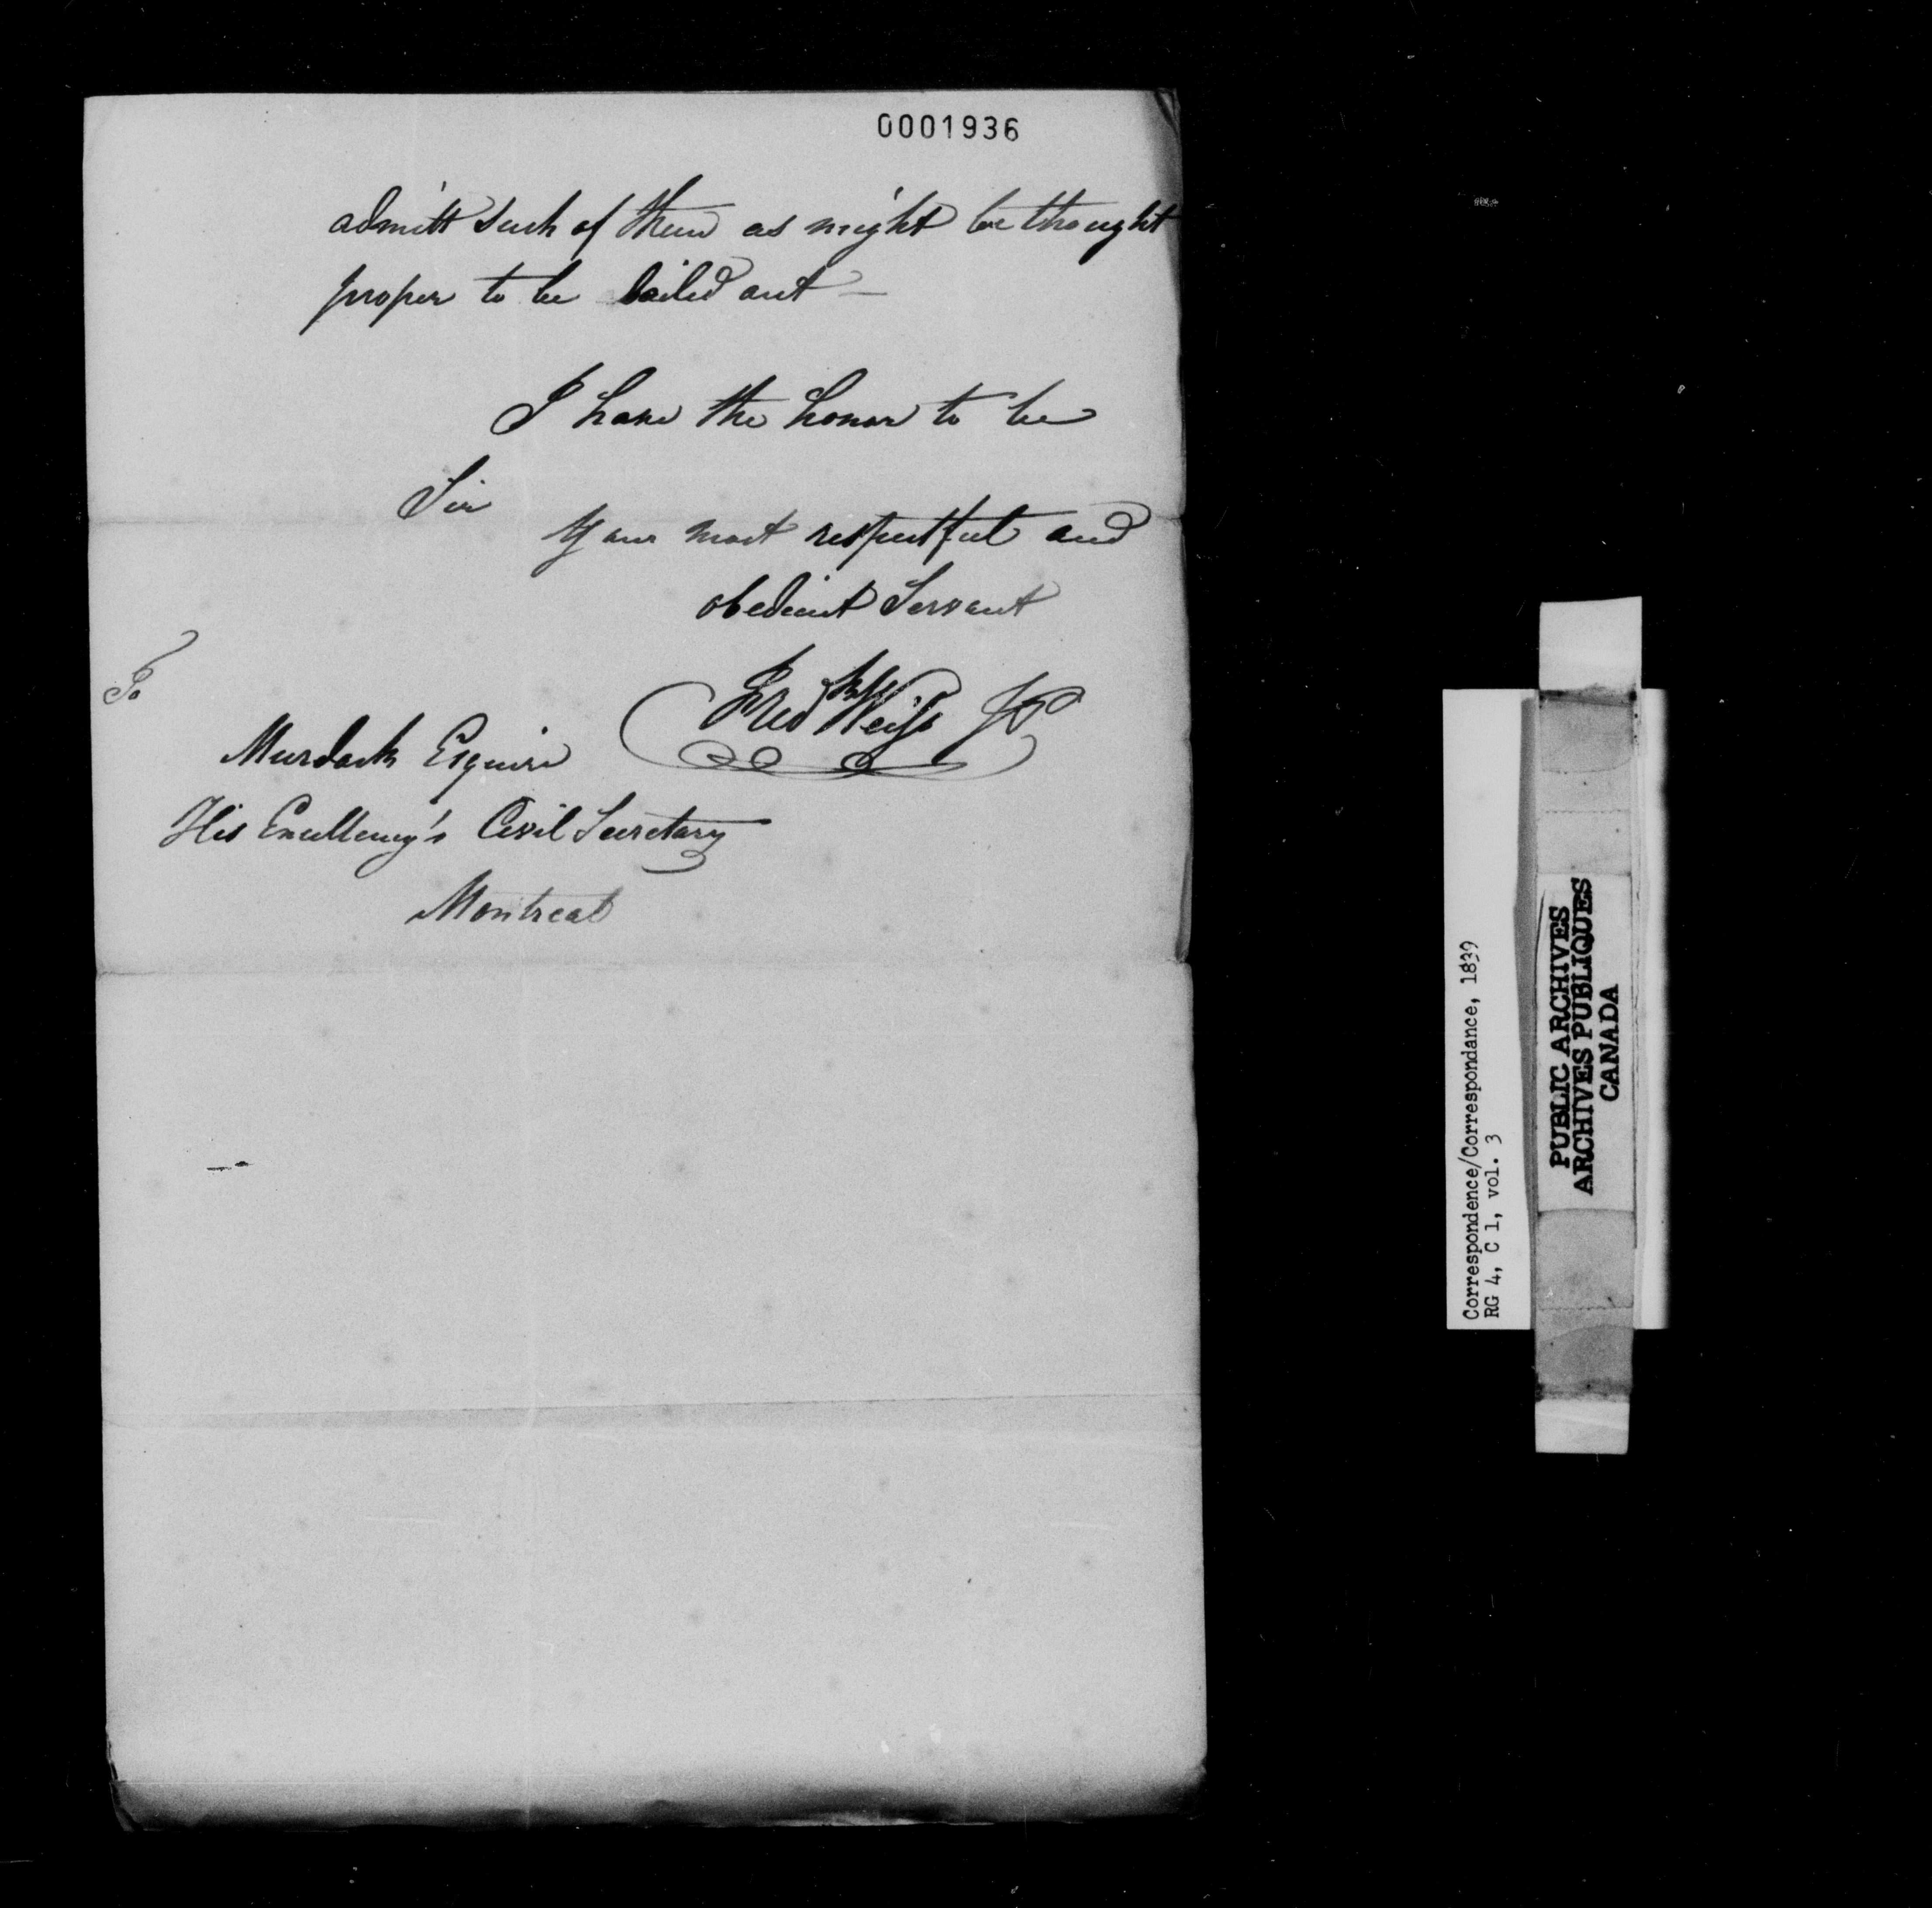 0001936
admitt such of them as might be thought
proper to be bailed out —
I have the honor to be
Sir
Your most respectful and
obedient Servant
Fred Weiss JP
To
Murdoch Esquire
His Excellency's Civil Secretary
Montreal
Correspondence/Correspondance, 1839
RG 4, C 1, vol. 3
PUBLIC ARCHIVES
ARCHIVES PUBLIQUES
CANADA